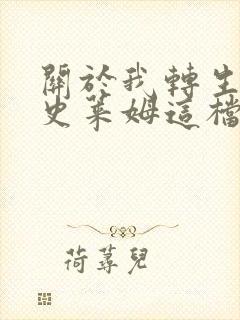 關於我轉生
史萊姆這檔
荷蕁兒